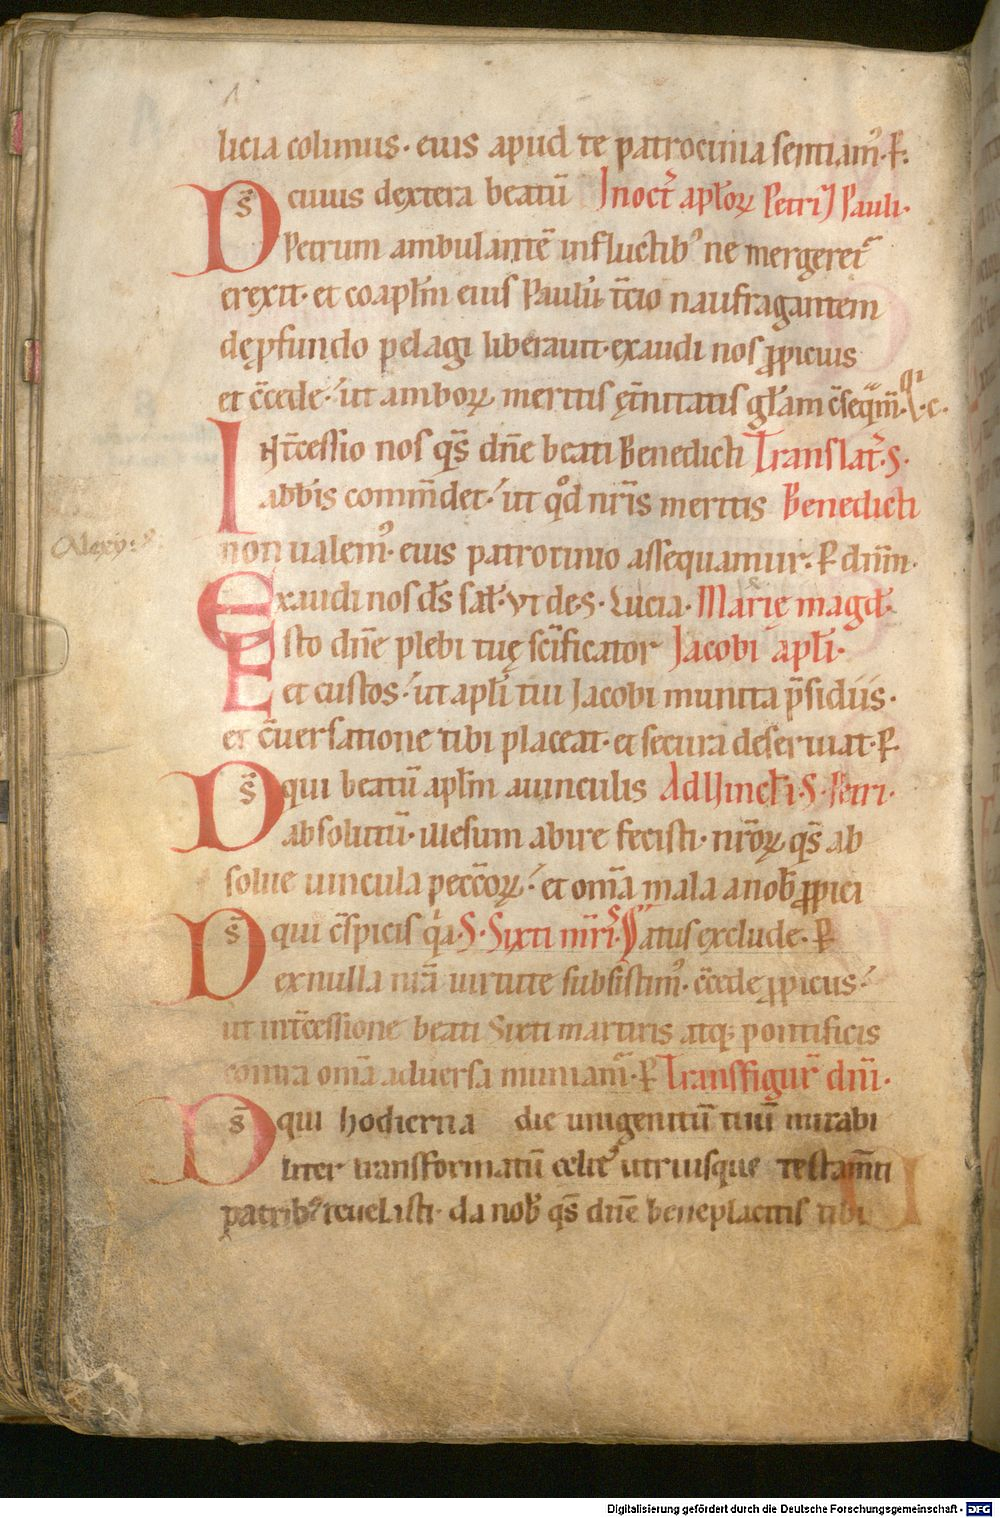 licia colimus· eius apud te patrocinia sentiam᷒· P̄·
D s̄ cuius dextera beatū In oct̄ apl̄oꝝ Petri ⁊ Pauli·
Petrum ambulantē in fluctib᷒ ne mergeret᷑
erexit· et coapl̄m eius Paulū t̄cio naufragantem
de ꝓfundo pelagi liberauit· exaudi nos ꝓpicius
et c̄cede· ut amboꝝ meritis et̄nitatis gl̄am c̄seq̄m᷑·
Int̄cessio nos qs̄ dn̄e beati Benedicti Translat̄· S·
abb̄is com̄ndet· ut qd̄ nr̄is meritis Benedicti
non ualem᷒· eius patrocinio assequamur· P̄ dn̄m·
Alexii
Exaudi nos ds̄ sal̄· vt de· S· Lucia· Marię magd̄·
Esto dn̄e plebi tuę sc̄ificator Jacobi apl̄i·
et custos· ut apl̄i tui Jacobi munita p̄sidiis·
et c̄uersatione tibi placeat· et secura deseruiat· P̄·
D s̄ qui beatū apl̄m a uinculis Ad Uincl̄a· S· Petri·
absolutū· illesum abire fecisti· nr̄oꝝ qs̄ ab
solue uincula pecc̄oꝝ· et om̄a mala a nob̄ ꝓpici
D s̄ qui c̄spicis q̄a· S· Sixti mr̄is· atus exclude· P̄
ex nulla nr̄a uirtute subsistim᷒· c̄cede ꝓpicius·
ut int̄cessione beati Sixti martiris atq; pontificis
contra om̄a aduersa muniam᷑· P̄ Transfigur̄ dn̄i·
D s̄ qui hodierna die unigenitū tuū mirabi
liter transformatū celit᷒ utriusque testam̄ti
patrib᷒ reuelasti· da nob̄ qs̄ dn̄e beneplacitis tibi
Digitalisierung gefördert durch die Deutsche Forschungsgemeinschaft - DFG